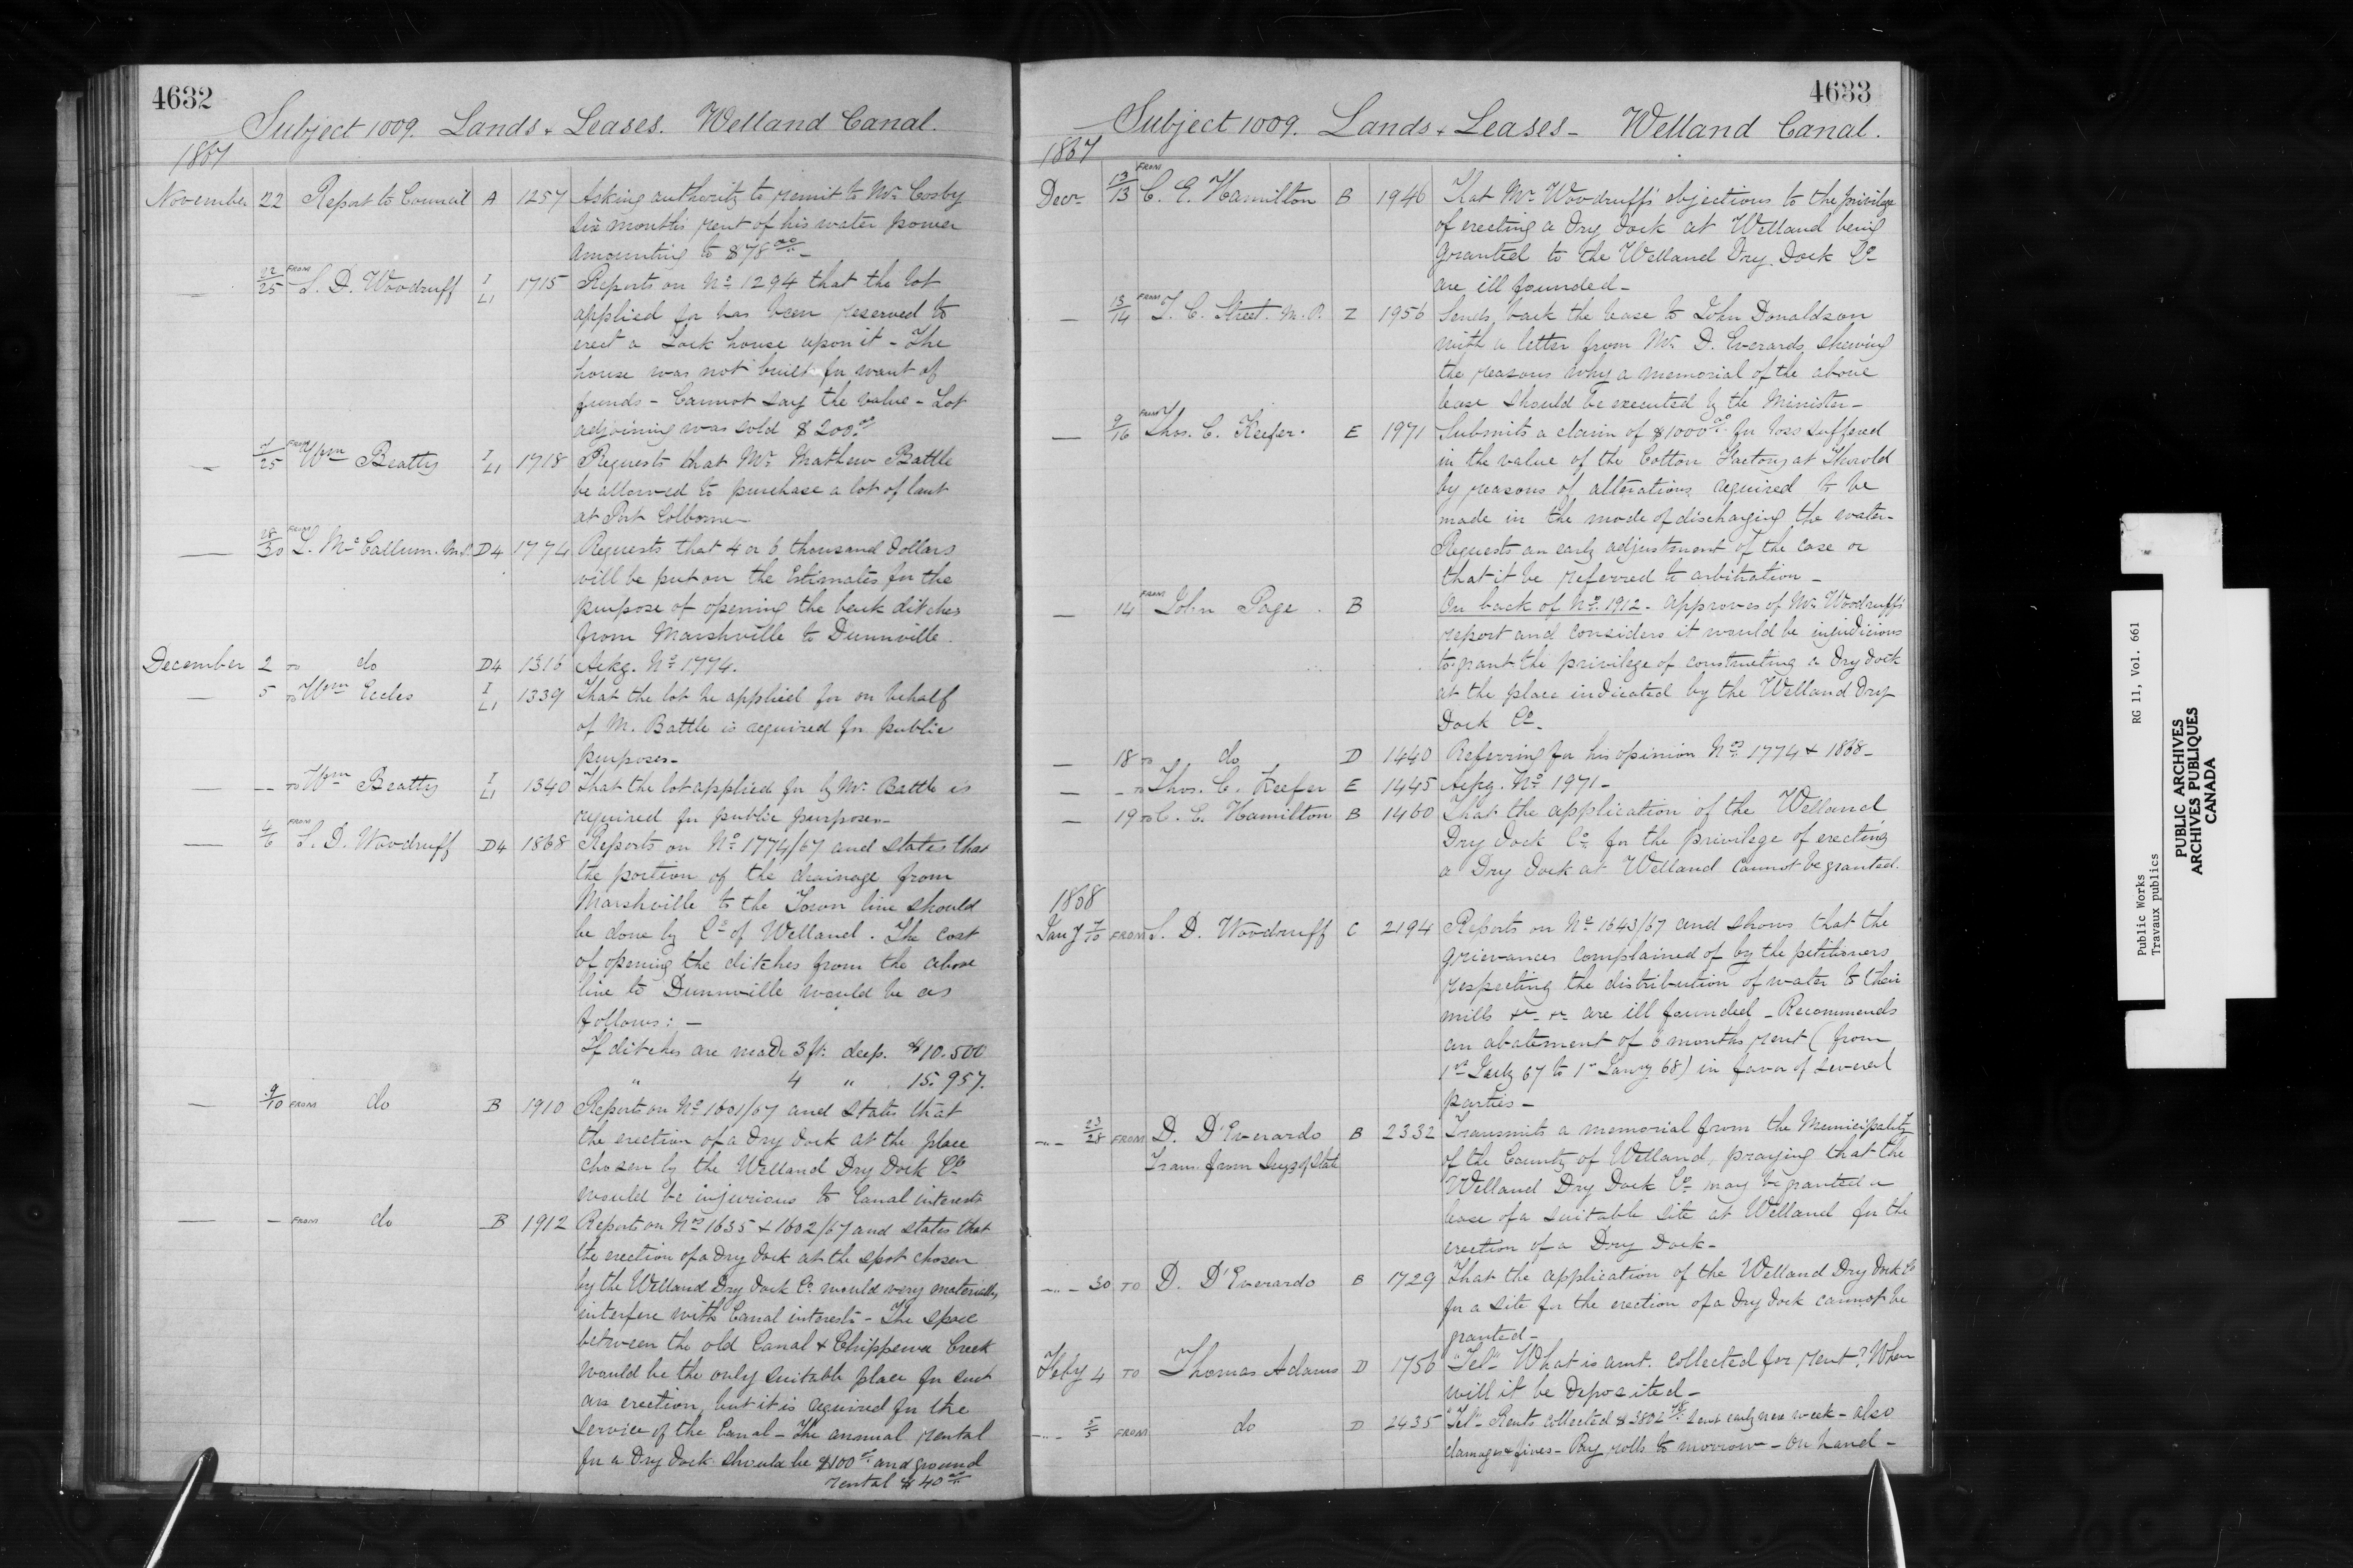 4632
Subject 1009. Lands & Leases. Welland Canal.
1867
November 22 Report to Council A 1257 Asking authority to remit to Mr. Cosby
six months rent of his water power
amounting to $78 00/..
— 22/25 FROM S. D. Woodruff I L1 1715 Reports on No. 1294 that the lot
applied for has been reserved to
erect a Lock house upon it - The
house was not built for want of
funds - Cannot say the value - Lot
adjoining was sold $200.00
— 25 FROM Wm Beatty I L1 1718 Requests that Mr. Mathew Battle
be allowed to purchase a lot of land
at Port Colborne
— 28/30 FROM L. McCallum. M.P. D4 1774 Requests that 4 or 6 thousand dollars
will be put on the Estimates for the
purpose of opening the back ditches
from Marshville to Dunnville.
December 2 TO do D4 1316 Ackg. No. 1774.
— 5 TO Wm Eccles I L1 1339 That the lot he applied for on behalf
of M. Battle is required for public
purposes—
— -- TO Wm Beatty I L1 1340 That the lot applied for by Mr. Battle is
required for public purposes—
— 4/6 FROM S. D. Woodruff D4 1868 Reports on No. 1774/67 and states that
the portion of the drainage from
Marshville to the Town line should
be done by Co of Welland. The cost
of opening the ditches from the above
line to Dunnville would be as
follows: —
If ditches are made 3 ft. deep. $10.500
" 4 " 15.957.
— 9/10 FROM do B 1910 Reports on No. 1601/67 and states that
the erection of a dry dock at the place
chosen by the Welland Dry Dock Co
would be injurious to Canal interests
— - FROM do B 1912 Reports on Nos 1635 & 1602/67 and states that
the erection of a dry dock at the spot chosen
by the Welland Dry dock Co. would very materially
interfere with Canal interests - The space
between the old Canal & Chippewa Creek
would be the only suitable place for such
an erection, but it is required for the
service of the Canal - The annual rental
for a Dry Dock should be $100.00 and ground
rental $40.00
4633
Subject 1009. Lands & Leases - Welland Canal.
1867
Decr. 13/13 FROM C. E. Hamilton B 1946 That Mr. Woodruff's objections to the privilege
of erecting a dry dock at Welland being
granted to the Welland Dry Dock Co
are ill founded -
— 13/14 FROM T. C. Street. M.P. Z 1956 Sends back the lease to John Donaldson
with a letter from Mr. D. Everardo shewing
the reasons why a memorial of the above
lease should be executed by the Minister -
— 9/16 FROM Thos. C. Keefer. E 1971 Submits a claim of $1000.00 for loss suffered
in the value of the Cotton Factory at Thorold
by reasons of alterations required to be
made in the mode of discharging the water -
Requests an early adjustment of the case or
that it be referred to arbitration -
— 14 FROM John Page. B On back of No. 1912 - approves of Mr. Woodruff's
report and considers it would be injudicious
to grant the privilege of constructing a dry dock
at the place indicated by the Welland Dry
Dock Co -
— 18 TO do D 1440 Referring for his opinion Nos 1774 & 1868 -
— - TO Thos. C. Keefer E 1445 Ackg. No. 1971 -
— 19 TO C. E. Hamilton B 1460 That the application of the Welland
Dry dock Co. for the privilege of erecting
a Dry Dock at Welland cannot be granted.
1868
Jany 7/10 FROM S. D. Woodruff C 2194 Reports on No. 1643/67 and shows that the
grievances complained of by the petitioners
respecting the distribution of water to their
mills &c - &c are ill founded - Recommends
an abatement of 6 months rent (from
1st July 67 to 1st Jany 68) in favor of several
parties -
-"- 23/28 FROM D. D'Everardo B 2332 Transmits a memorial from the Municipality
Trans. from Secy of State of the County of Welland, praying that the
Welland Dry Dock Co. may be granted a
lease of a suitable site at Welland for the
erection of a Dry Dock -
-"- 30 TO D. D'Everardo B 1729 That the application of the Welland Dry Dock Co
for a site for the erection of a dry dock cannot be
granted -
Feby 4 TO Thomas Adams D 1756 "Tel" What is amt. collected for rent? When
will it be deposited -
-"- 5/5 FROM do D 2435 "Tel" Rents collected $3802 78/.. sent early next week - also
damages & fines - Pay rolls to morrow - on hand -
Public Works RG 11, Vol. 661
Travaux publics
PUBLIC ARCHIVES
ARCHIVES PUBLIQUES
CANADA